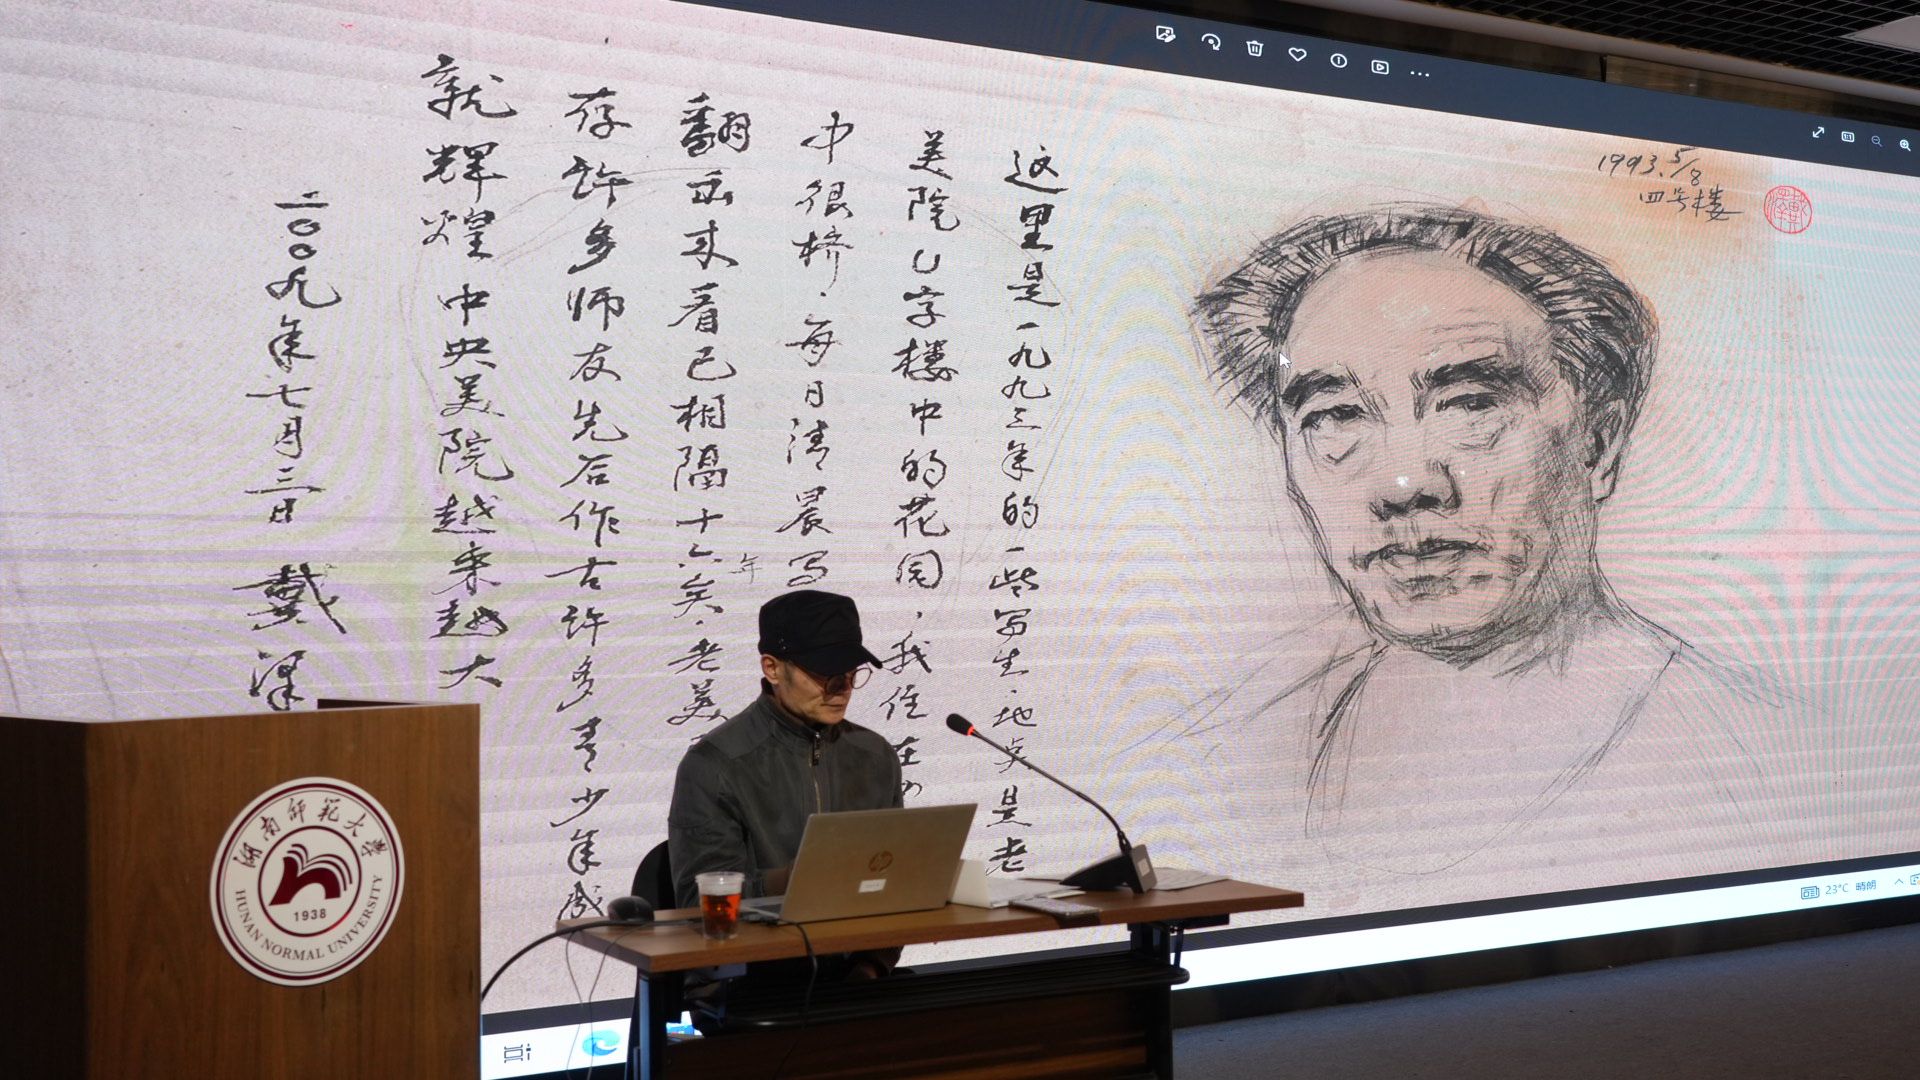 1993.5/8
四号楼
这里是一九九三年的一些写生.地点是老
美院U字楼中的花园,我住在
中很挤.每日清晨写
翻出来看已相隔十六年矣.老美
存许多师友先后作古许多青少年成
就辉煌 中央美院越来越大
二〇〇九年七月三日 戴泽
23°C 晴朗
湖南师范大学
1938
HUNAN NORMAL UNIVERSITY
hp